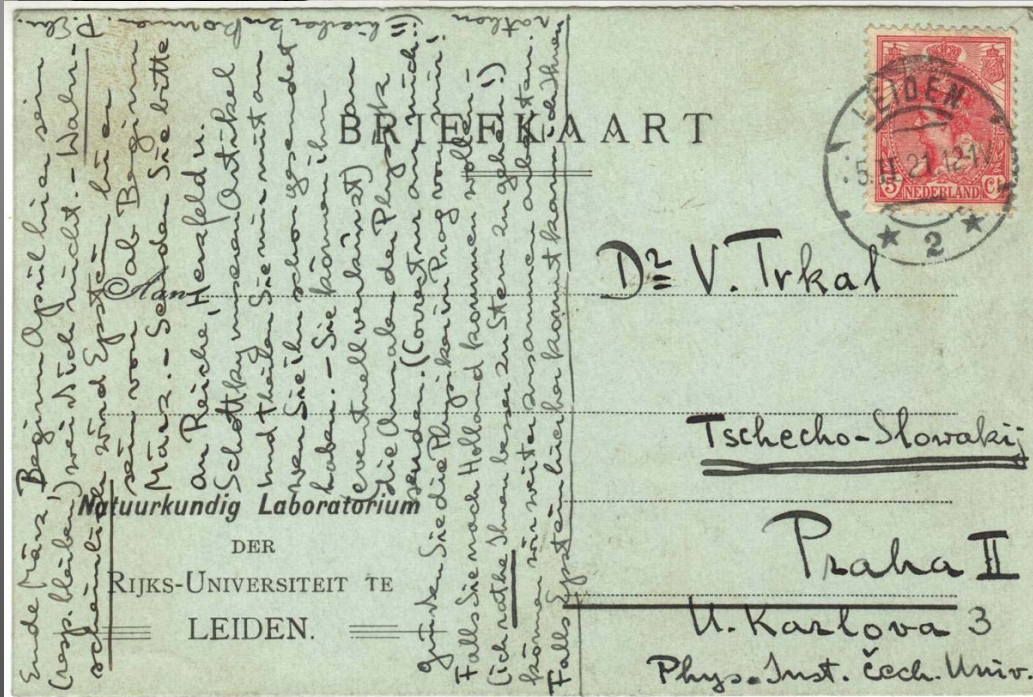 BRIEFKAART
Aan
LEIDEN
5.II.21.12-1V
2
5 Ct
NEDERLAND
Dr. V. Trkal
Tschecho-Slowakij
Praha II
U. Karlova 3
Phys. Inst. Čech. Univ.
Natuurkundig Laboratorium
DER
RIJKS-UNIVERSITEIT TE
LEIDEN.
Ende März, Beginn April hier sein
(resp. bleiben) weiß ich nicht. – Wahr-
scheinlich wird Epstein hier
sein von ab Beginn
März. – Senden Sie bitte
an Reiche, Herzfeld u.
Schottky unseren Artikel
und theilen Sie mir mit an
wen Sie ihn schon gesendet
haben. – Sie können ihn
(eventuell verkürzt) an
die Annalen der Physik
senden. (Courant nur an mich.
Grüßen Sie die Physiker in Prag von mir!
Falls Sie nach Holland kommen wollen
(ich rathe Ihnen besser zu Stern zu gehen!)
können wir weiter zusammen arbeiten.
Falls Epstein hierher kommt kann ich Ihnen
rathen
hieher zu kommen. P. Ehr.